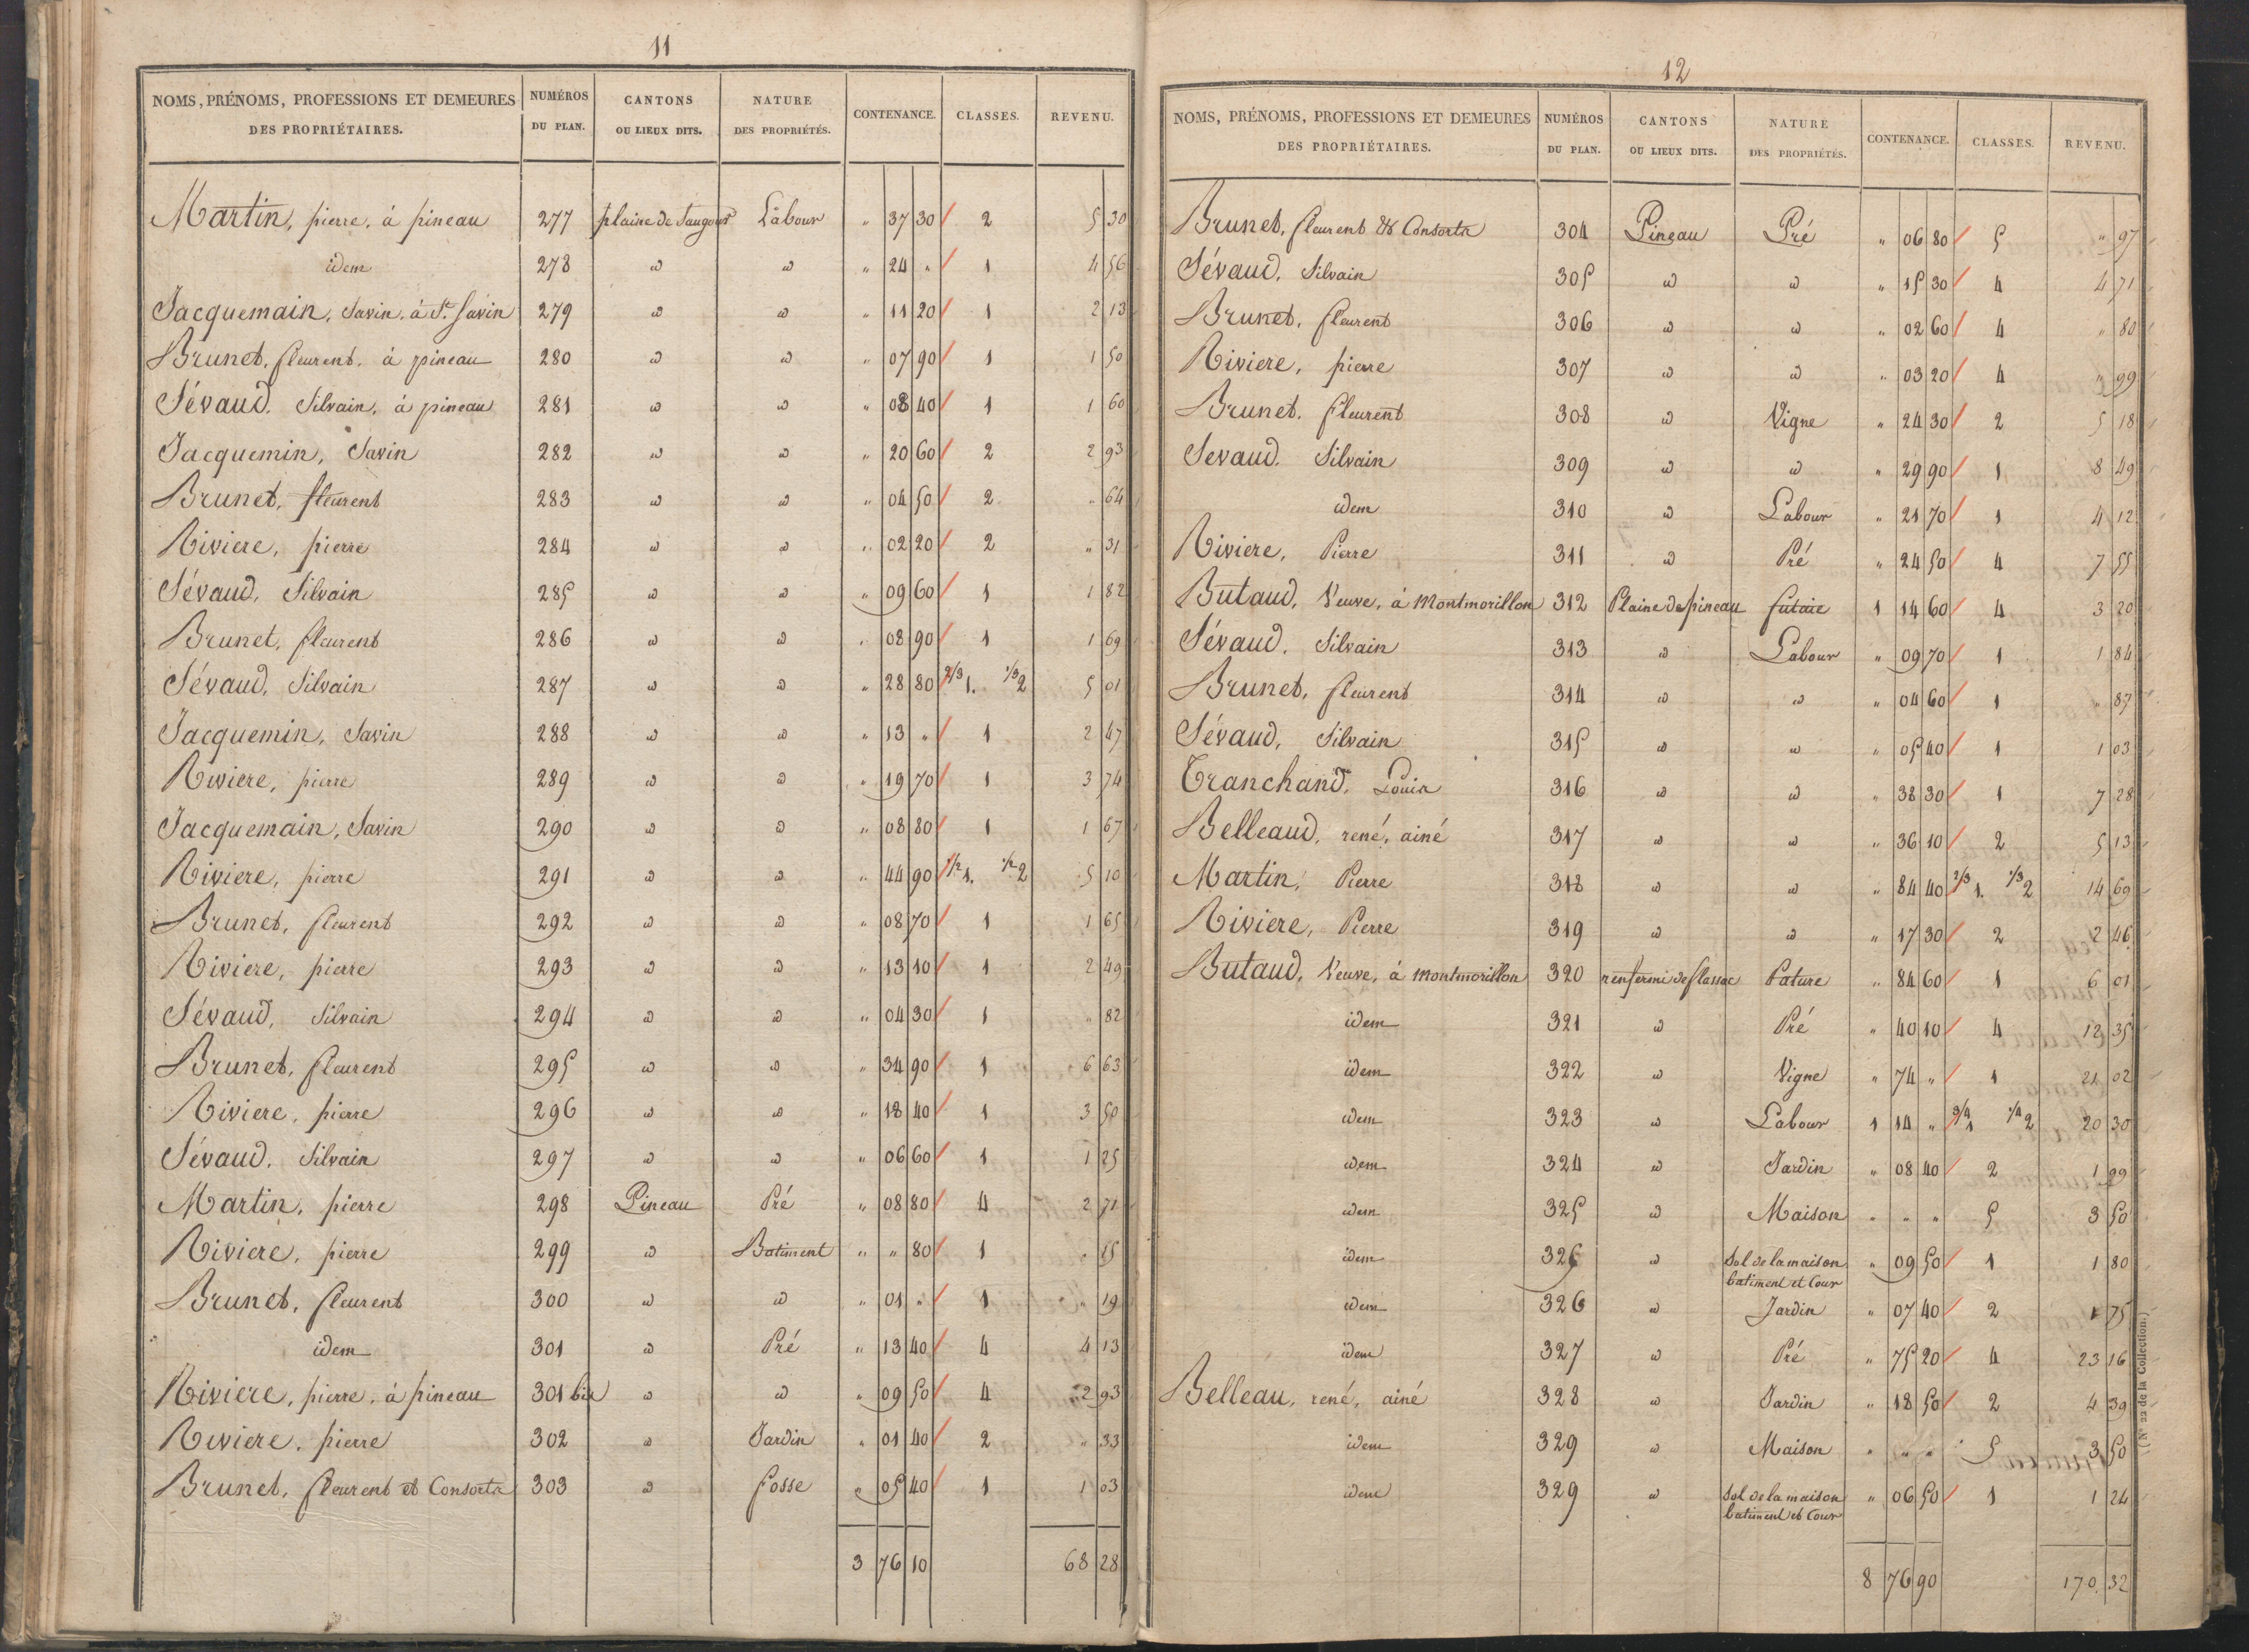 11
NOMS, PRÉNOMS, PROFESSIONS ET DEMEURES DES PROPRIÉTAIRES. NUMÉROS DU PLAN. CANTONS OU LIEUX DITS. NATURE DES PROPRIÉTÉS. CONTENANCE. CLASSES. REVENU.
Martin, pierre, à pineau 277 plaine de Labour " 37 30 2 5 30
idem 278 id id " 24 " 1 4 56
Jacquemain, Savin, à St. Savin 279 id id " 11 20 1 2 13
Brunet, fleurent, à pineau 280 id id " 07 90 1 1 50
Sévaud, Silvain, à pineau 281 id id " 08 40 1 1 60
Jacquemin, Savin 282 id id " 20 60 2 2 93
Brunet, fleurent 283 id id " 04 50 2 " 64
Riviere, pierre 284 id id " 02 20 2 " 31
Sévaud, Silvain 285 id id " 09 60 1 1 82
Brunet, fleurent 286 id id " 08 90 1 1 69
Sévaud, Silvain 287 id id " 28 80 2/3 1. 1/3 2 5 01
Jacquemin, Savin 288 id id " 13 " 1 2 47
Riviere, pierre 289 id id " 19 70 1 3 74
Jacquemain, Savin 290 id id " 08 80 1 1 67
Riviere, pierre 291 id id " 44 90 1/2 1. 1/2 2 5 10
Brunet, fleurent 292 id id " 08 70 1 1 65
Riviere, pierre 293 id id " 13 10 1 2 49
Sévaud, Silvain 294 id id " 04 30 1 " 82
Brunet, fleurent 295 id id " 34 90 1 6 63
Riviere, pierre 296 id id " 18 40 1 3 50
Sévaud, Silvain 297 id id " 06 60 1 1 25
Martin, pierre 298 Pineau Pré " 08 80 4 2 71
Riviere, pierre 299 id Batiment " " 80 1 " 15
Brunet, fleurent 300 id id " 01 " 1 " 19
idem 301 id Pré " 13 40 4 4 13
Riviere, pierre, à pineau 301 bis id id " 09 50 4 2 93
Riviere, pierre 302 id Jardin " 01 40 2 " 33
Brunet, fleurent et Consorts 303 id fosse " 05 40 1 1 03
3 76 10 68 28
12
NOMS, PRÉNOMS, PROFESSIONS ET DEMEURES DES PROPRIÉTAIRES. NUMÉROS DU PLAN. CANTONS OU LIEUX DITS. NATURE DES PROPRIÉTÉS. CONTENANCE. CLASSES. REVENU.
Brunet, fleurent & Consorts 304 Pineau Pré " 06 80 5 " 97
Sévaud, Silvain 305 id id " 15 30 4 4 71
Brunet, fleurent 306 id id " 02 60 4 " 80
Riviere, pierre 307 id id " 03 20 4 " 99
Brunet, fleurent 308 id Vigne " 24 30 2 5 18
Sevaud, Silvain 309 id id " 29 90 1 8 49
idem 310 id Labour " 21 70 1 4 12
Riviere, Pierre 311 id Pré " 24 50 4 7 55
Butaud, Veuve, à Montmorillon 312 Plaine de pineau futaie 1 14 60 4 3 20
Sévaud, Silvain 313 id Labour " 09 70 1 1 84
Brunet, fleurent 314 id id " 04 60 1 " 87
Sévaud, Silvain 315 id id " 05 40 1 1 03
Tranchand, Louis 316 id id " 38 30 1 7 28
Belleaud, rené, ainé 317 id id " 36 10 2 5 13
Martin, Pierre 318 id id " 84 40 2/3 1. 1/3 2 14 69
Riviere, Pierre 319 id id " 17 30 2 2 46
Butaud, Veuve, à Montmorillon 320 renfermi de flassac Pature " 84 60 1 6 01
idem 321 id Pré " 40 10 4 12 35
idem 322 id Vigne " 74 " 1 21 02
idem 323 id Labour 1 14 " 3/4 1 1/4 2 20 30
idem 324 id Jardin " 08 40 2 1 99
idem 325 id Maison " " " 5 3 50
idem 326 id Sol de la maison batiment et Cour " 09 50 1 1 80
idem 326 id Jardin " 07 40 2 1 75
idem 327 id Pré " 75 20 4 23 16
Belleau, rené, ainé 328 id Jardin " 18 50 2 4 39
idem 329 id Maison " " " 5 3 50
idem 329 id Sol de la maison batiment et Cour " 06 50 1 1 24
8 76 90 170 32
(N° 22 de la Collection.)